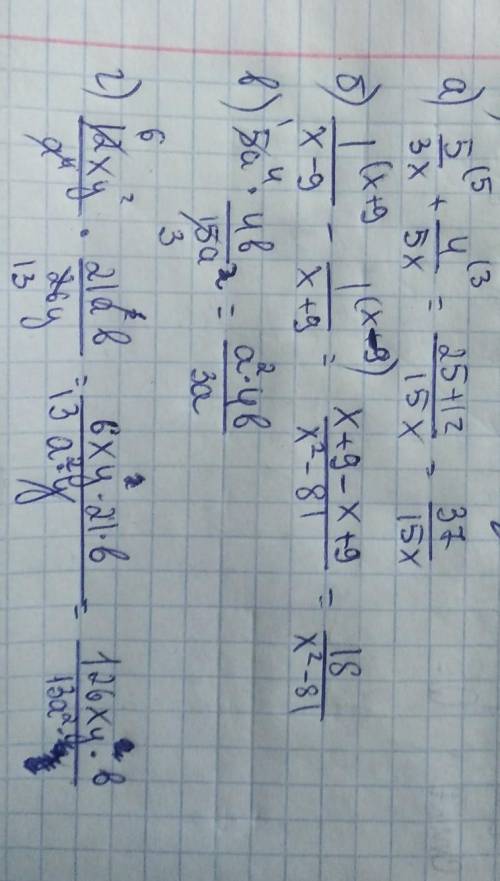 а) 5(5/3x + 4(3/5x = 25+12/15x = 37/15x
б) 1(x+9/x-9 - 1(x-9)/x+9 = x+9-x+9/x²-81 = 18/x²-81
в) 5a⁴ · 4в/15a² = a²·4в/3a
1
3
г) 12xy²/a⁴ · 21a²в/26y = 6xy²·21·в/13a²·y = 126xy·в/13a²
6
13